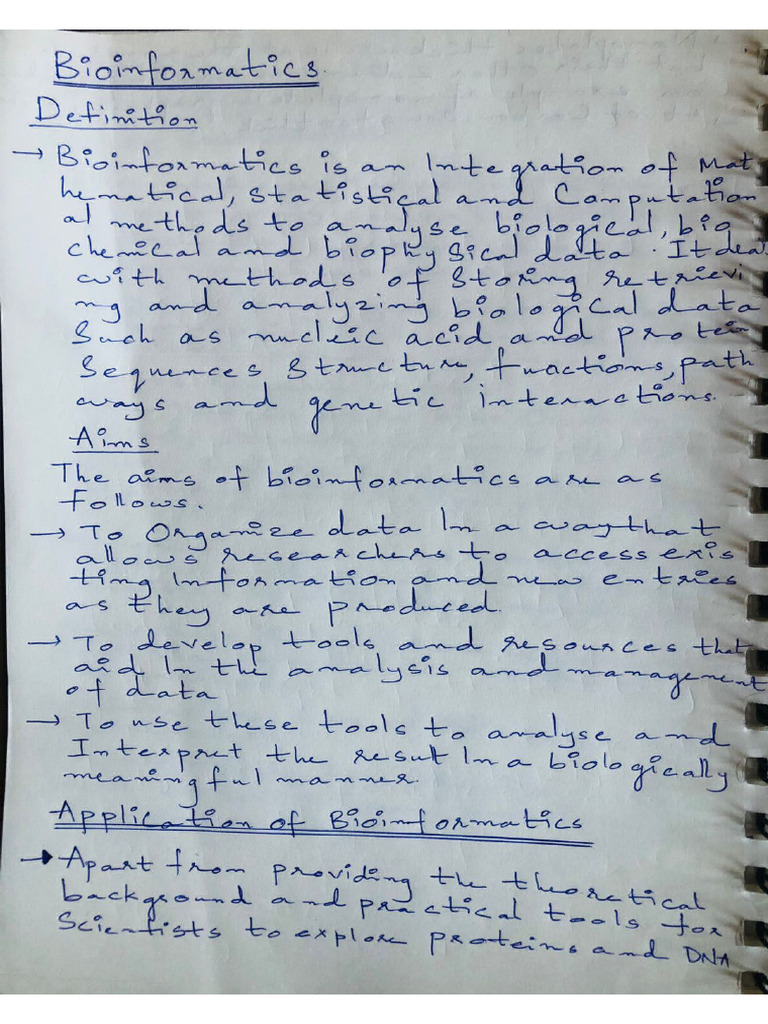 Bioinformatics.
Definition
→ Bioinformatics is an Integration of Mat
hematical, Statistical and Computation
al methods to analyse biological, bio
chemical and biophysical data. It deals
with methods of Storing retrievi
ng and analyzing biological data
Such as nucleic acid and protein
Sequences Structure, functions, path
ways and genetic interactions.
Aims
The aims of bioinformatics are as
follows.
→ To Organize data In a way that
allows researchers to access exis
ting Information and new entries
as they are produced.
→ To develop tools and resources that
aid In the analysis and management
of data
→ To use these tools to analyse and
Interpret the result In a biologically
meaningful manner.
Application of Bioinformatics
→ Apart from providing the theoretical
background and practical tools for
Scientists to explore proteins and DNA